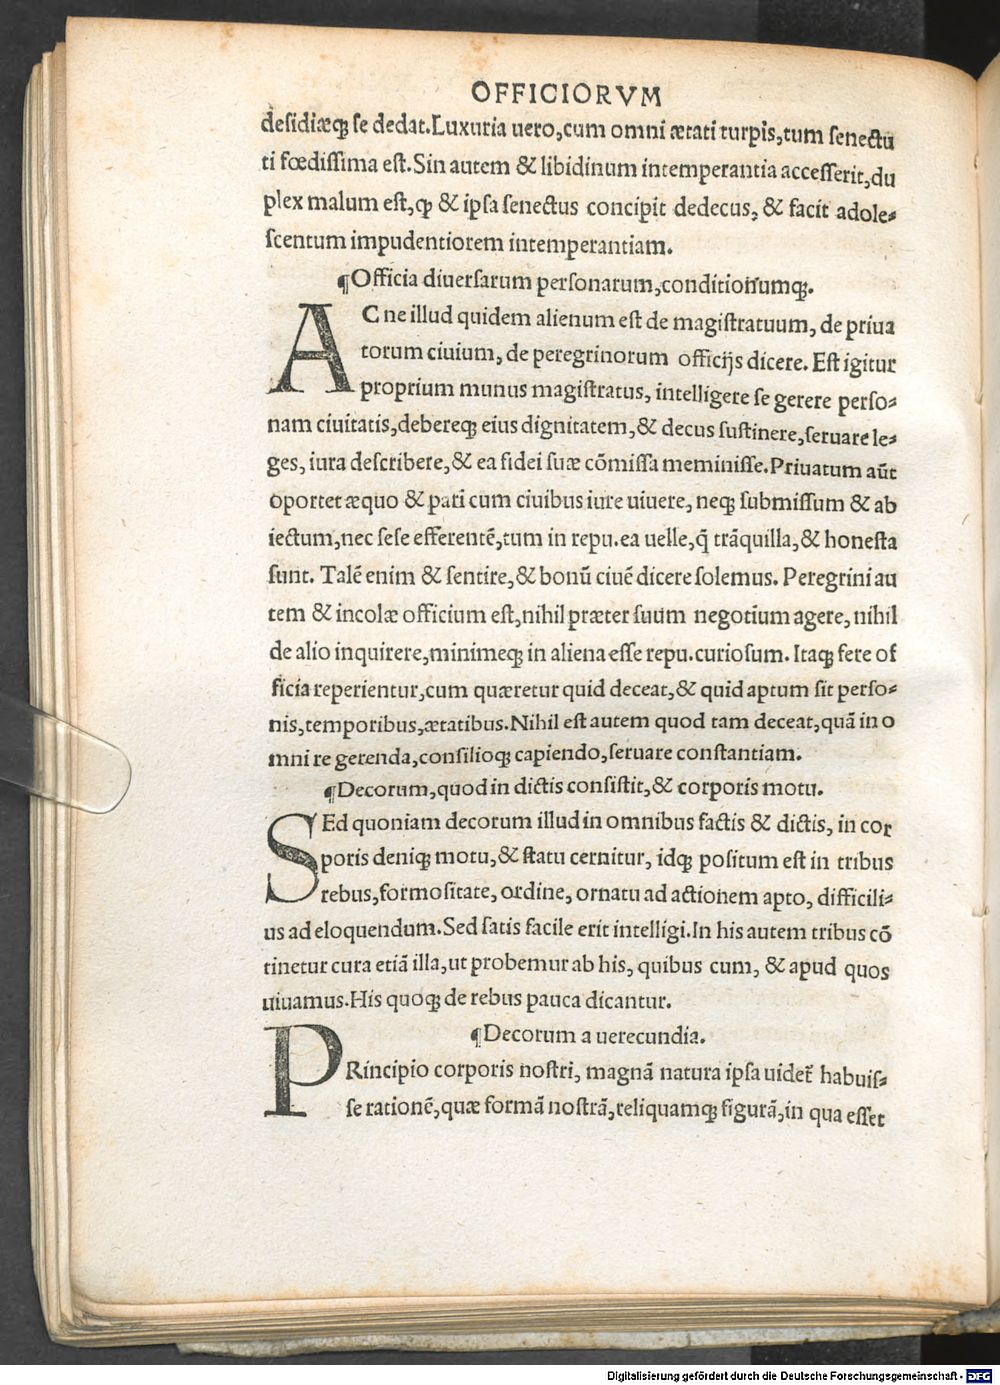 OFFICIORVM
desidiæq́; se dedat. Luxuria uero, cum omni ætati turpis, tum senectu
ti fœdissima est. Sin autem & libidinum intemperantia accesserit, du
plex malum est, ꝙ & ipsa senectus concipit dedecus, & facit adole⸗
scentum impudentiorem intemperantiam.
¶Officia diuersarum personarum, conditionumq́;.
AC ne illud quidem alienum est de magistratuum, de priua
torum ciuium, de peregrinorum officijs dicere. Est igitur
proprium munus magistratus, intelligere se gerere perso⸗
nam ciuitatis, debereq́; eius dignitatem, & decus sustinere, seruare le⸗
ges, iura describere, & ea fidei suæ cōmissa meminisse. Priuatum aūt
oportet æquo & pari cum ciuibus iure uiuere, neq́; submissum & ab
iectum, nec sese efferentē, tum in repu. ea uelle, q̄ trāquilla, & honesta
sunt. Talē enim & sentire, & bonū ciuē dicere solemus. Peregrini au
tem & incolæ officium est, nihil præter suum negotium agere, nihil
de alio inquirere, minimeq́; in aliena esse repu. curiosum. Itaq́; fere of
ficia reperientur, cum quæretur quid deceat, & quid aptum sit perso⸗
nis, temporibus, ætatibus. Nihil est autem quod tam deceat, quā in o
mni re gerenda, consilioq́; capiendo, seruare constantiam.
¶Decorum, quod in dictis consistit, & corporis motu.
SEd quoniam decorum illud in omnibus factis & dictis, in cor
poris deniq́; motu, & statu cernitur, idq́; positum est in tribus
rebus, formositate, ordine, ornatu ad actionem apto, difficili⸗
us ad eloquendum. Sed satis facile erit intelligi. In his autem tribus cō
tinetur cura etiā illa, ut probemur ab his, quibus cum, & apud quos
uiuamus. His quoq́; de rebus pauca dicantur.
¶Decorum a uerecundia.
PRincipio corporis nostri, magnā natura ipsa uidet᷑ habuis⸗
se rationē, quæ formā nostrā, reliquamq́; figurā, in qua esset
Digitalisierung gefördert durch die Deutsche Forschungsgemeinschaft - DFG